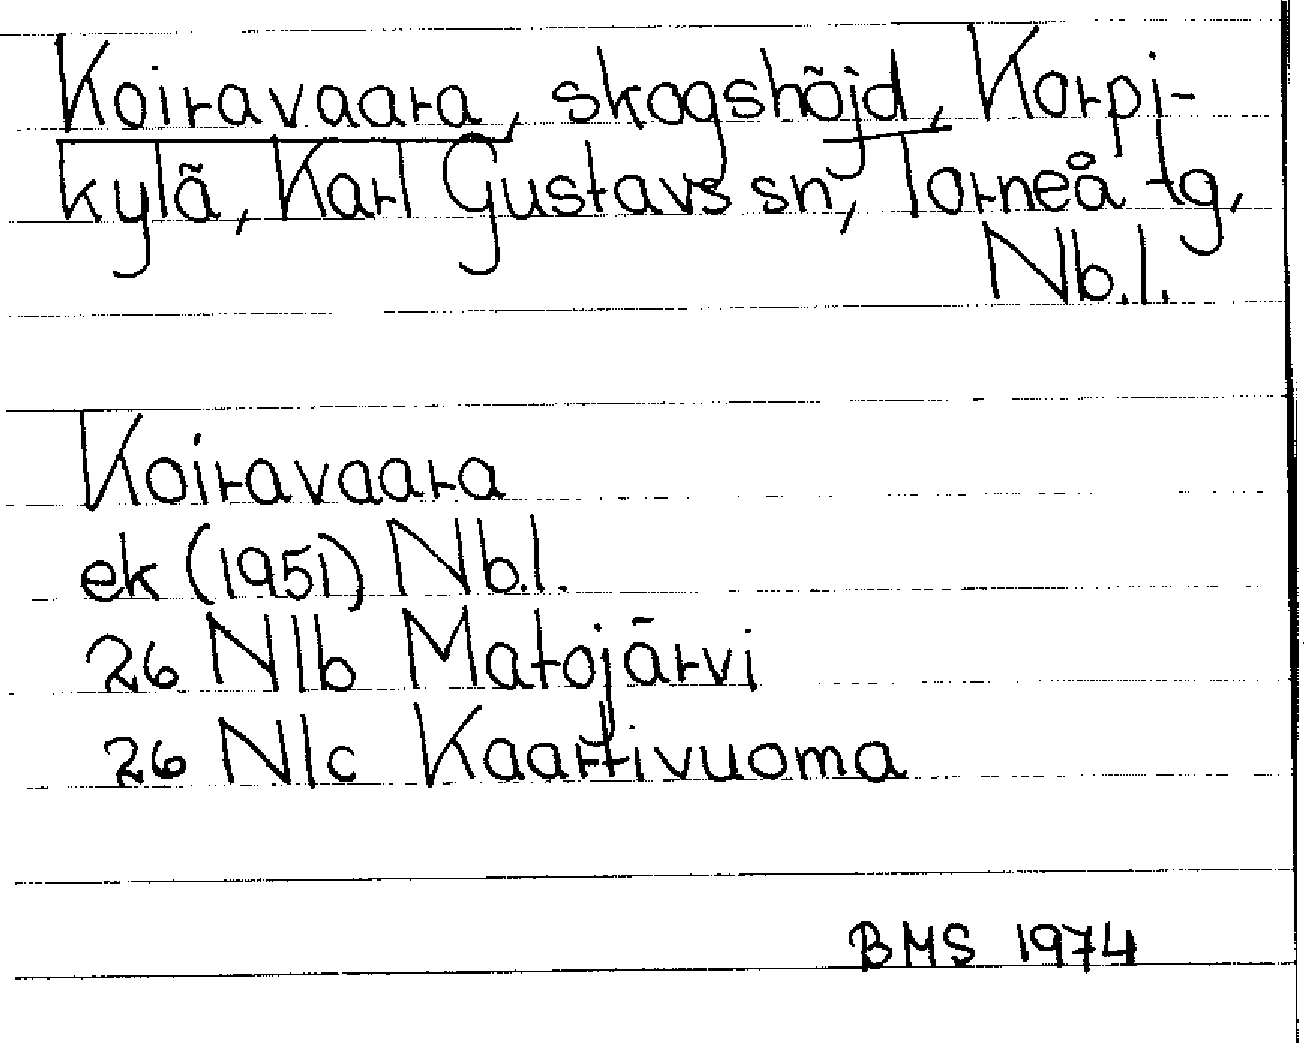 Koiravaara, skogshöjd, Korpi-
kylä, Karl Gustavs sn, Torneå tg,
Nb.l.
Koiravaara
ek (1951) Nb.l.
26 Nlb Matojärvi
26 Nlc Kaartivuoma
BMS 1974